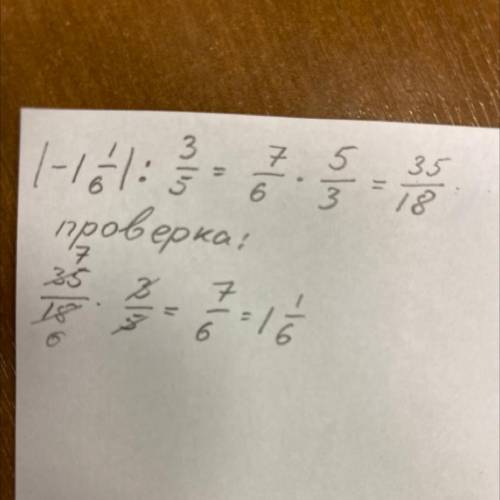 |-1 1/6| : 3/5 = 7/6 · 5/3 = 35/18.
проверка:
35/18 · 3/5 = 7/6 = 1 1/6
7
6